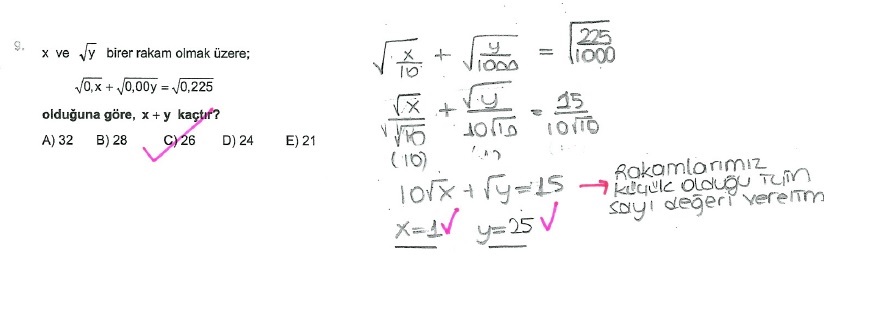 9.
x ve √y birer rakam olmak üzere;
√0,x + √0,00y = √0,225
olduğuna göre, x + y kaçtır?
A) 32 B) 28 C) 26 D) 24 E) 21
√x/10 + √y/1000 = √225/1000
√x/√10 + √y/10√10 = 15/10√10
(10) (1)
10√x + √y = 15 → Rakamlarımız
küçük olduğu için
sayı değeri verelim
x = 1 ✓ y = 25 ✓